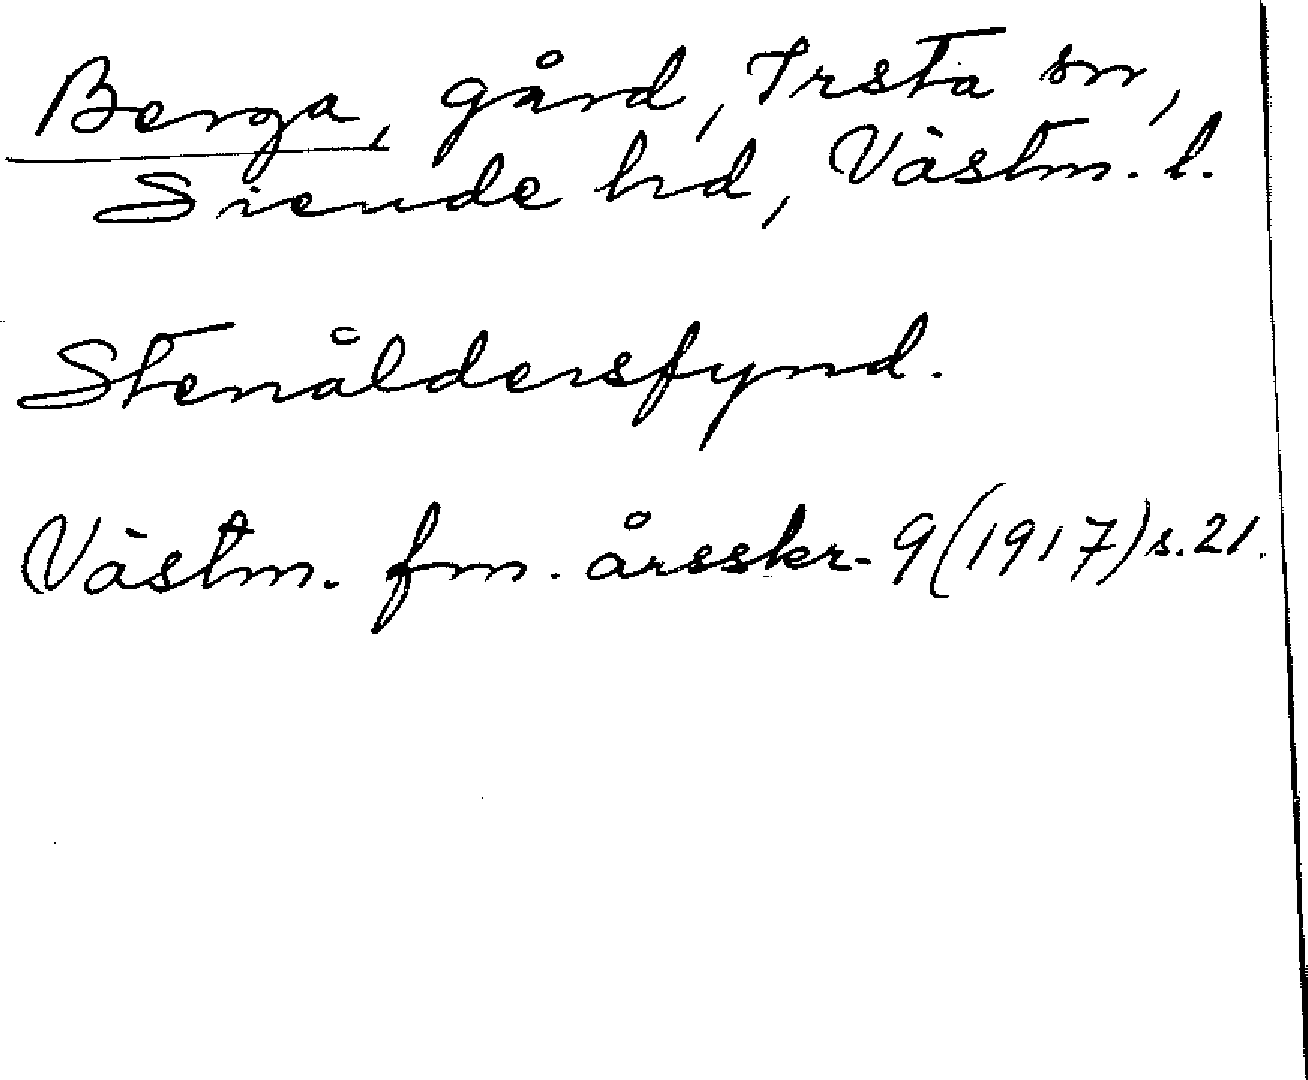 Berga, gård, Irsta sn,
Siende hd, Västm. l.
Stenåldersfynd.
Västm. fm. årsskr. 9 (1917) s. 21.